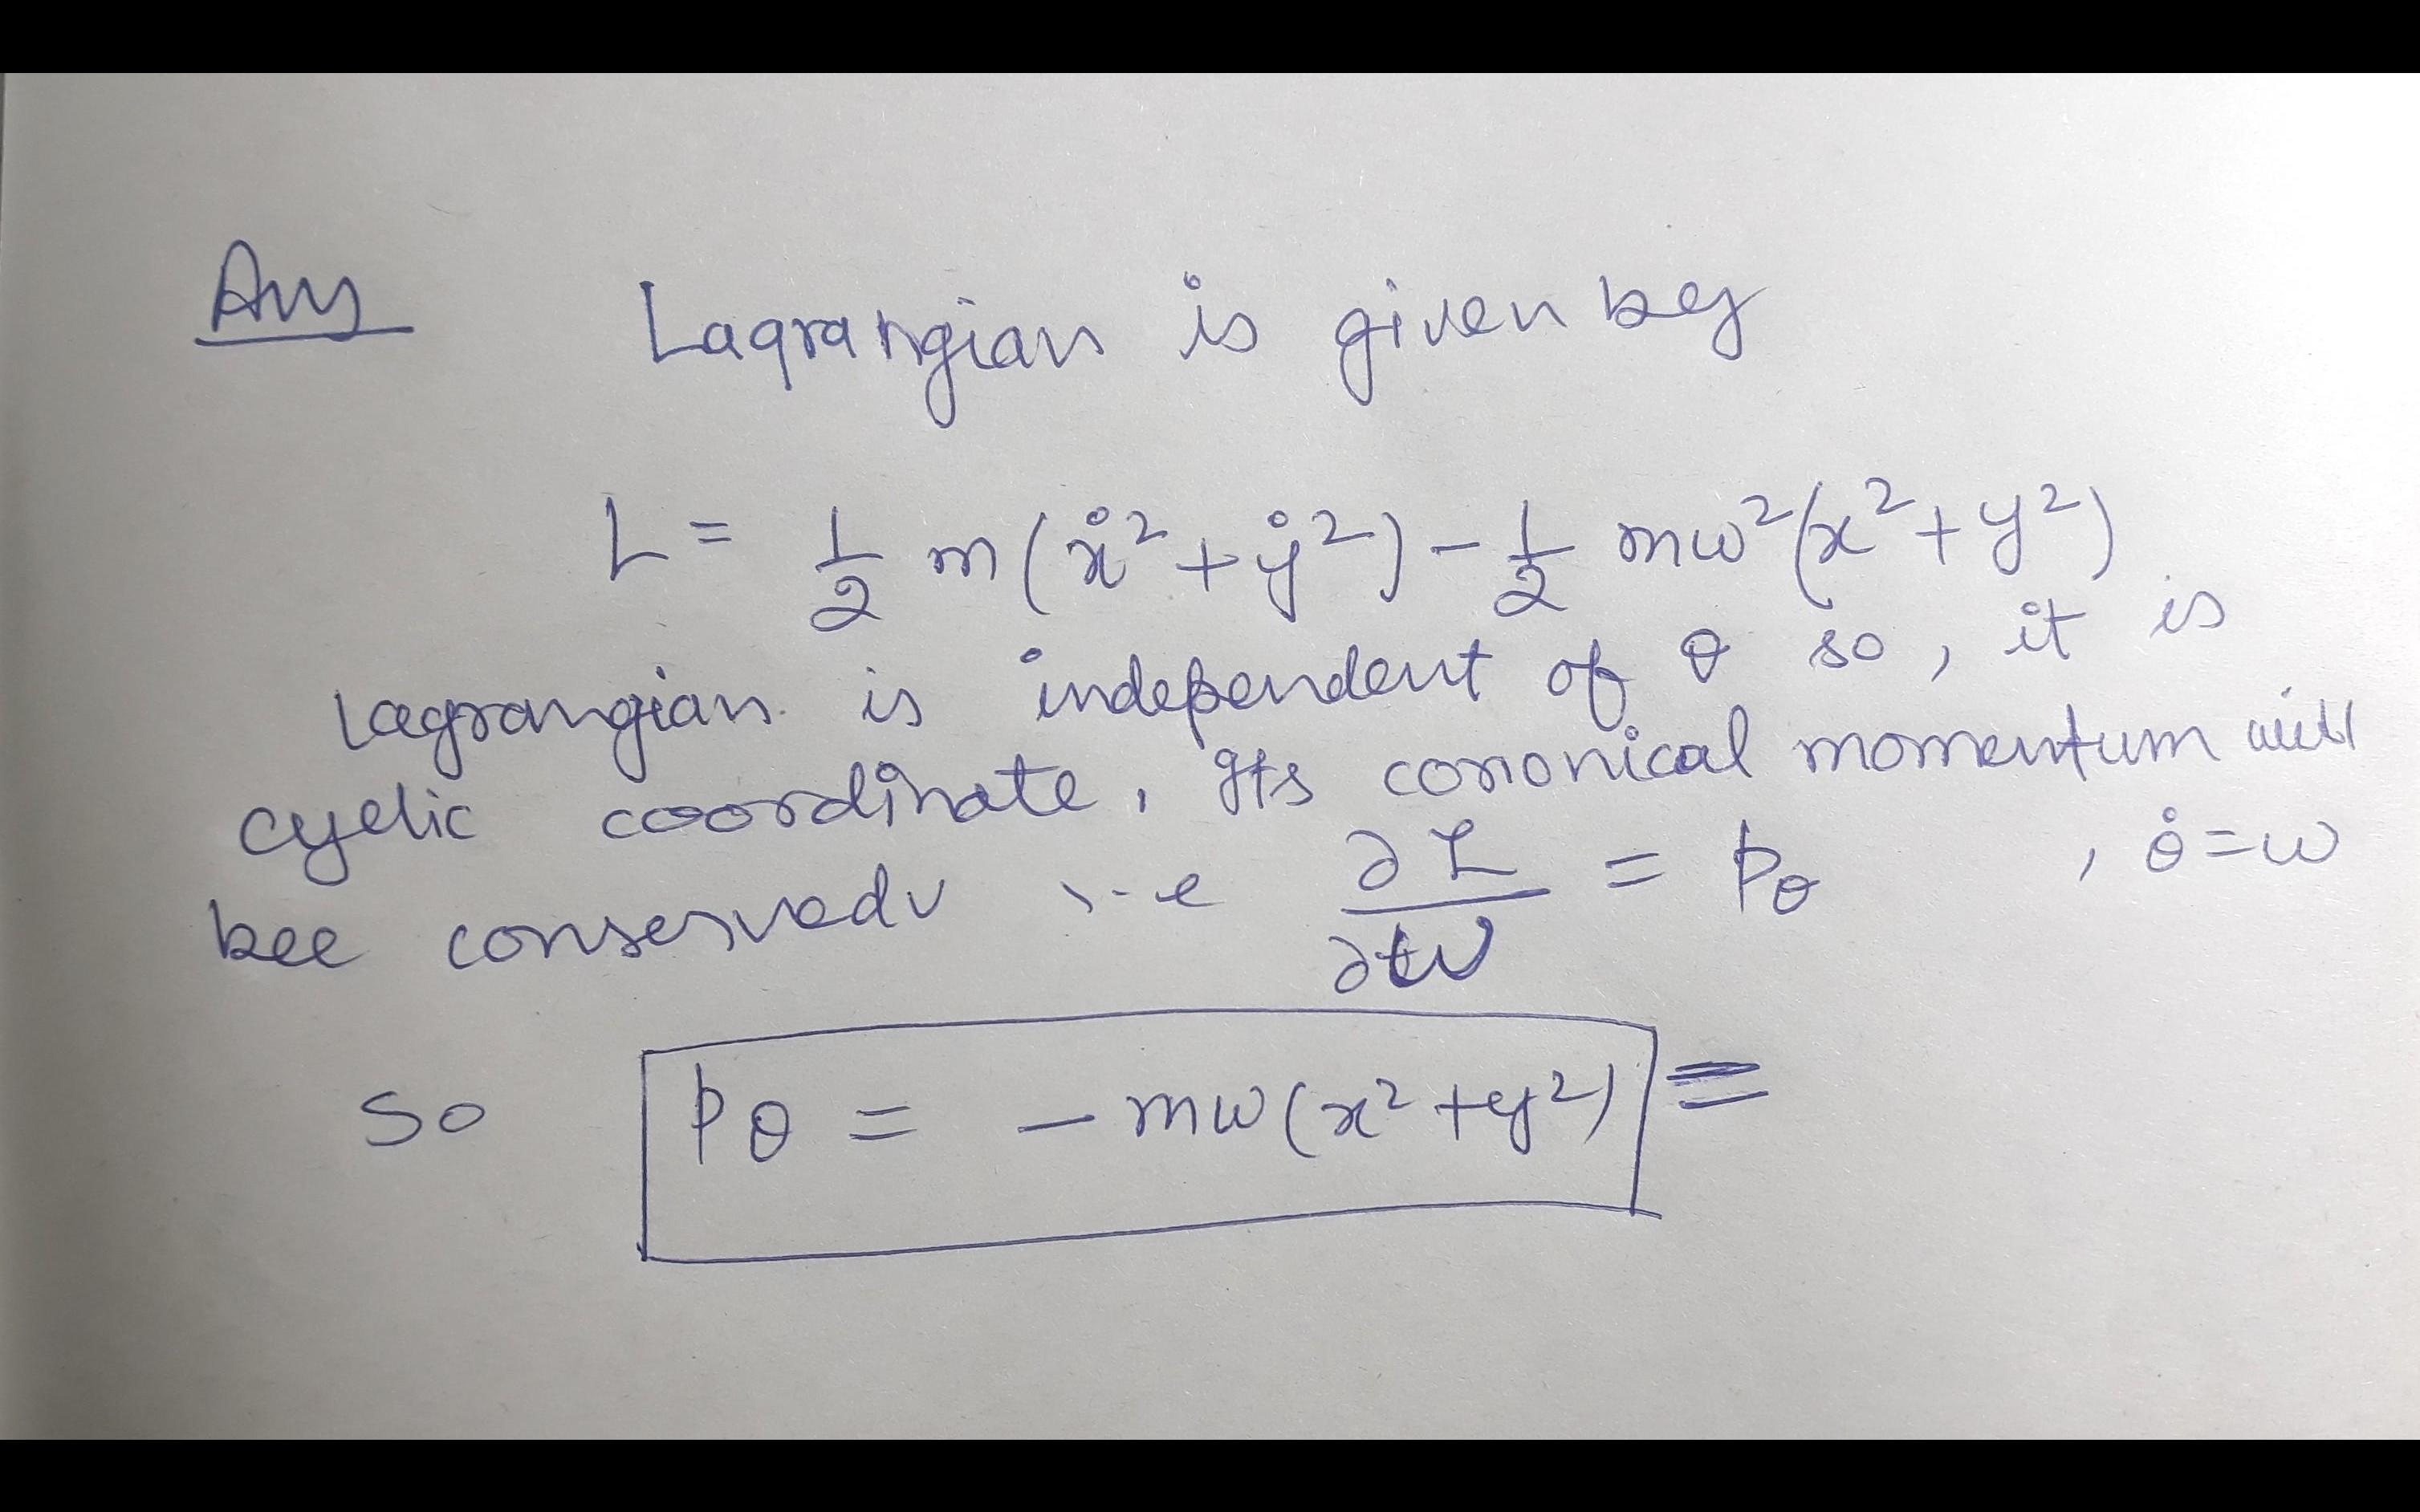 Ans Lagrangian is given by
L = 1/2 m(ẋ² + ẏ²) - 1/2 mω²(x² + y²)
Lagrangian is independent of θ so, it is
cyclic coordinate, Its cononical momentum will
bee conserved i-e ∂L/∂ω = Pθ , θ̇ = ω
so Pθ = - mω(x² + y²) =